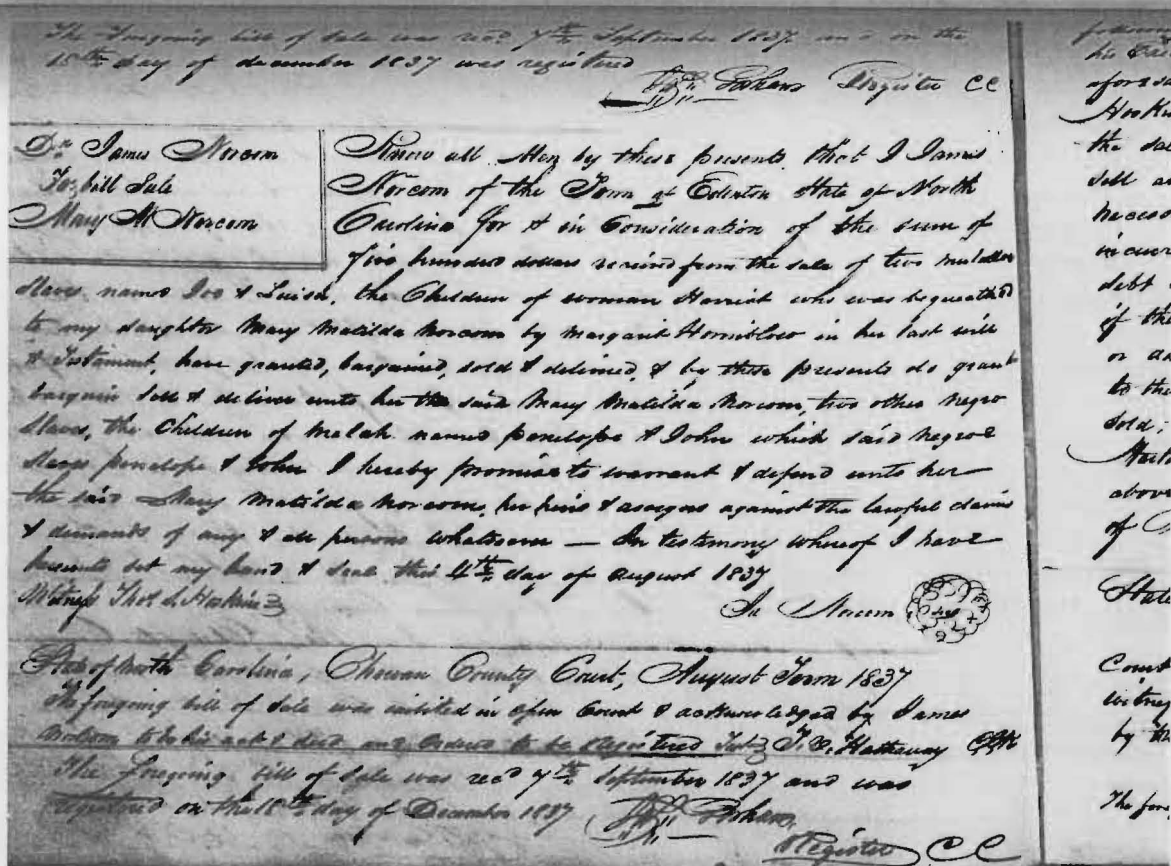 The foregoing bill of Sale was recd 7th September 1837 and on the
18th day of december 1837 was registered
Register CC
Dr James Norcom
To bill Sale
Mary M Norcom
Know all Men by these presents that I James
Norcom of the Town of Edenton State of North
Carolina for & in Consideration of the sum of
five hundred dollars received from the sale of two mulatto
slaves named Joe & Luisa, the Children of woman Harriet who was bequeathed
to my daughter Mary Matilda Norcom by Margaret Horniblow in her last will
& Testament, have granted, bargained, sold & delivered, & by these presents do grant
bargain sell & deliver unto her the said Mary Matilda Norcom, two other negro
slaves, the Children of Melah named penelope & John which said negroe
slaves penelope & John I hereby promise to warrant & defend unto her
the said Mary Matilda Norcom, her heirs & assigns against the lawful claims
& demands of any & all persons whatsoever — In testimony whereof I have
hereunto set my hand & seal this 4th day of August 1837
Witness Thos S. Hoskins
Ja Norcom
State of North Carolina, Chowan County Court, August Term 1837
The foregoing bill of Sale was exibited in open Court & acknowledged by James
Norcom to be his act & deed and Ordered to be Registered Test T. V. Hathaway Clk
The foregoing bill of Sale was recd 7th September 1837 and was
registered on the 18th day of December 1837
Register CC
the sal
sell an
debt
of the
or an
to the
sold;
above
of
State
Court
witnes
by
The fore